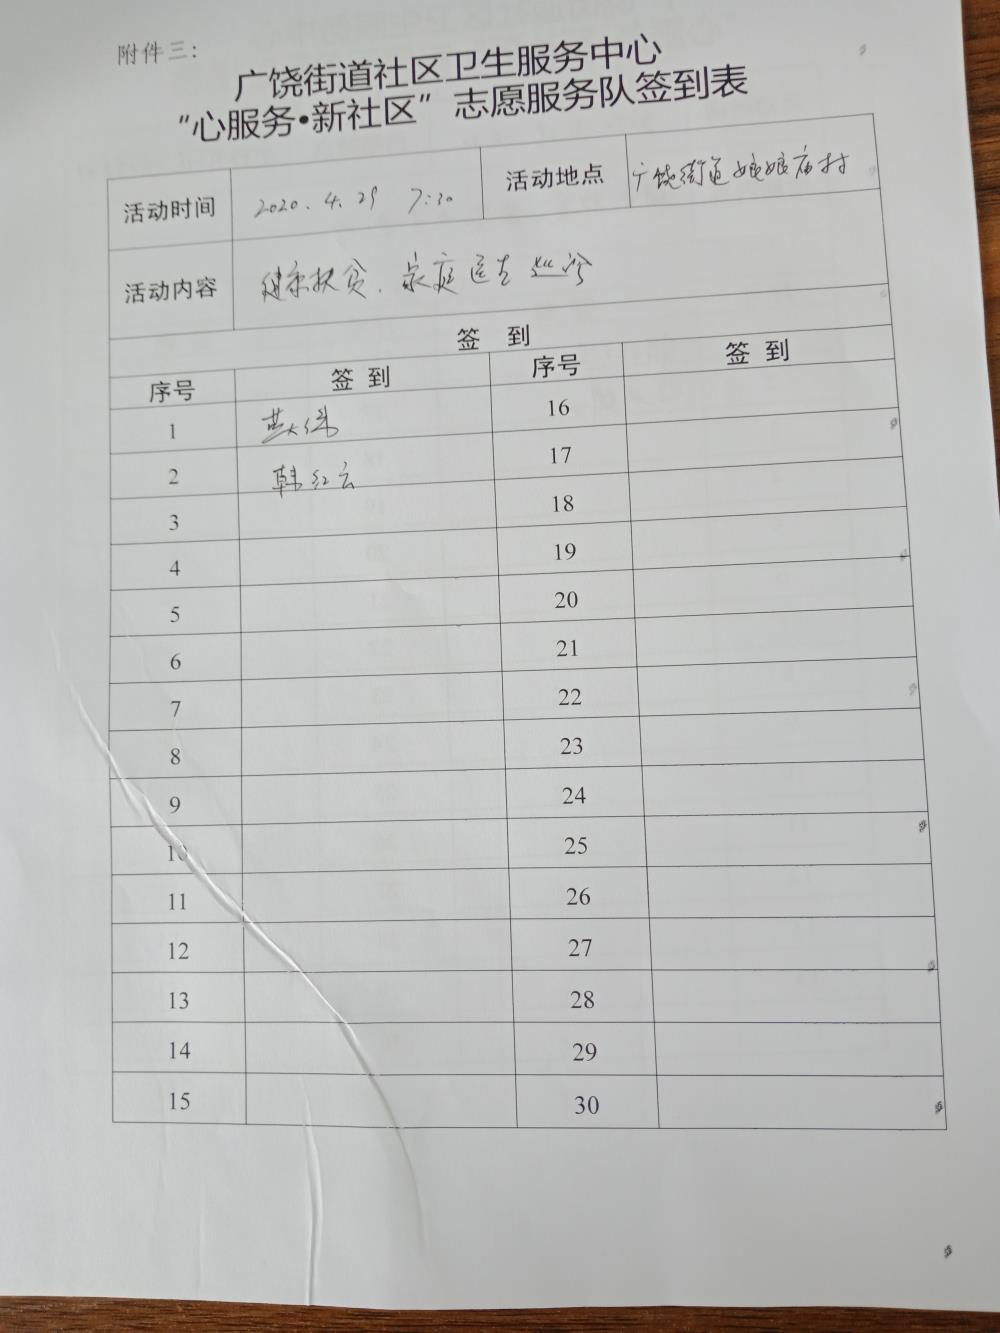 附件三:
广饶街道社区卫生服务中心
“心服务•新社区”志愿服务队签到表
活动时间 2020.4.29 7:30 活动地点 广饶街道娘娘庙村
活动内容 健康扶贫、家庭医生巡诊
签 到
序号 签 到 序号 签 到
1 16
2 韩红云 17
3 18
4 19
5 20
6 21
7 22
8 23
9 24
10 25
11 26
12 27
13 28
14 29
15 30